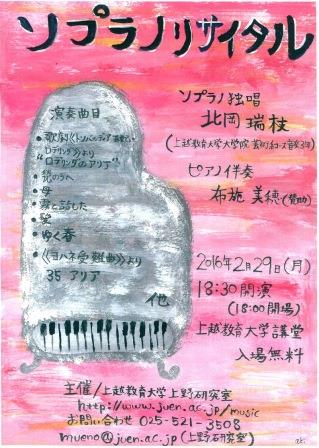 ソプラノリサイタル
演奏曲目
•歌劇《
》より
"ロデリンダのアリア"
•
•母
•霧と話した
•愛
•ゆく春
•《ヨハネ受難曲》より
35 アリア
他
ソプラノ独唱
北岡 瑞枝
(上越教育大学大学院 芸術系コース音楽3年)
ピアノ伴奏
布施 美穂(賛助)
2016年2月29日(月)
18:30 開演
(18:00 開場)
上越教育大学講堂
入場無料
主催/上越教育大学上野研究室
http://www.juen.ac.jp/music
お問い合わせ 025-521-3508
mueno@juen.ac.jp(上野研究室)